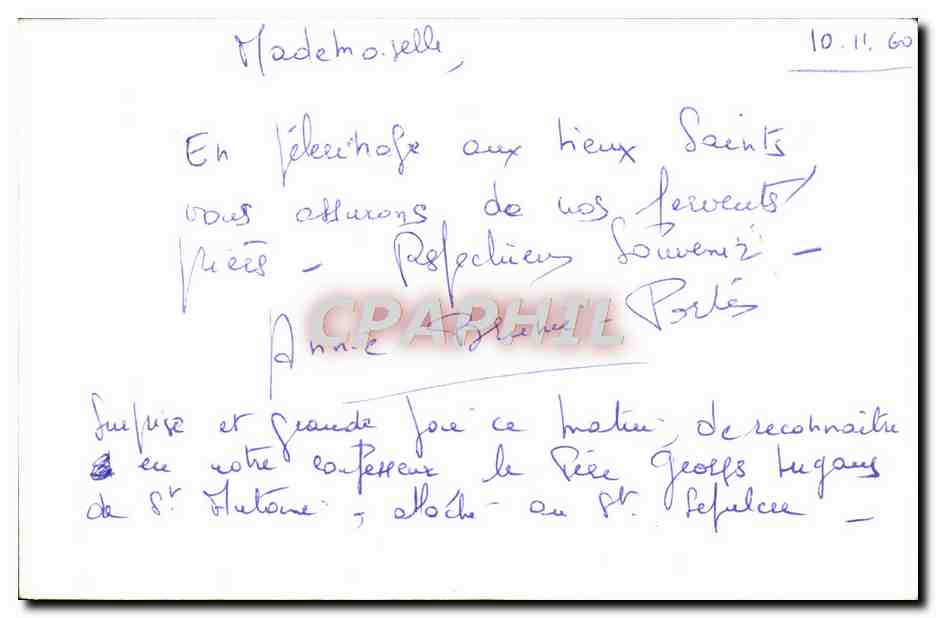 10.11.60
Mademoiselle,
En pélerinage aux Lieux Saints
vous assurons de nos fervents
prières - Respectueux Souvenir -
CPAPHIL
Annie - Portés
Surprise et grande joie ce matin, de reconnaître
en notre confesseur le Père Georges
de St. Antoine - attaché au St. Sépulcre -